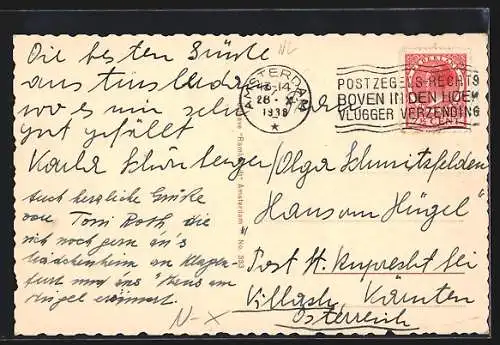 Die besten Grüße
aus
wo es mir sehr
gut gefällt
Karla
Auch herzliche Grüße
von Toni Roth, die
sich noch gern an's
Mädchenheim in Klagen-
furt und an's "Haus am
Hügel" erinnert.
N-X
AMSTERDAM
28.X
1938
POSTZEGELS RECHTS
BOVEN IN DEN HOEK
VLUGGER VERZENDING
Amsterdam No. 383
Olga
"Haus am Hügel"
Post St. Ruprecht bei
Villach, Kärnten
Österreich